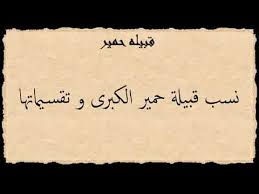 قبيله حمير
نسب قبيلة حمير الكبرى و تقسيماتها